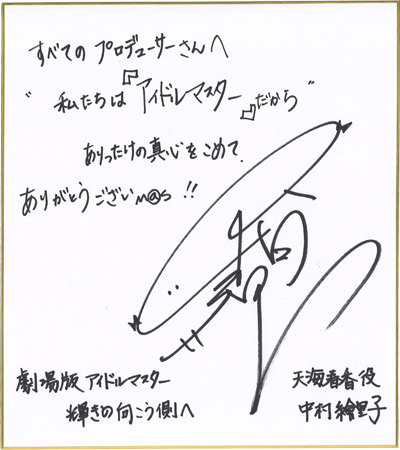 すべての プロデューサーさんへ
"私たちは『アイドルマスター』だから"
ありったけの真心をこめて、
ありがとうございM@S!!
劇場版 アイドルマスター
輝きの向こう側へ
天海春香役
中村繪里子